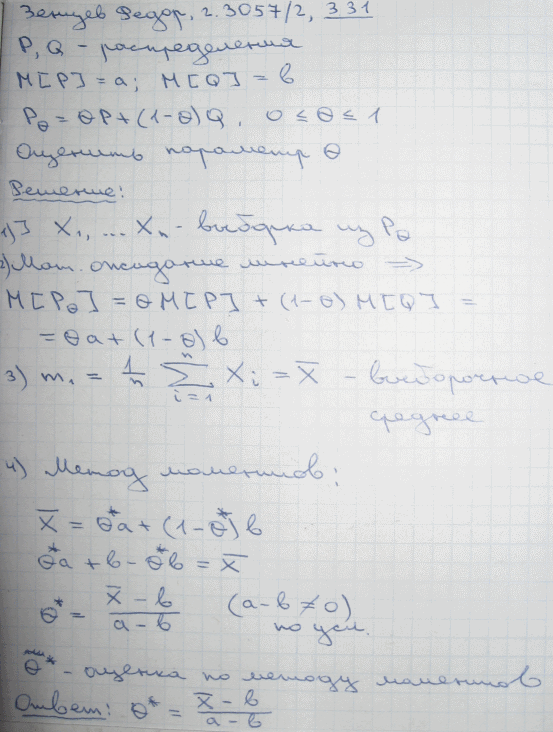 Зенцев Федор, г. 3057/2, 331
P, Q - распределения
M[P] = a; M[Q] = b
P_θ = θP + (1-θ)Q, 0 ≤ θ ≤ 1
Оценить параметр θ
Решение:
1) ] X₁, ... Xₙ - выборка из P_θ
2) Мат. ожидание линейно ⇒
M[P_θ] = θ M[P] + (1-θ) M[Q] =
= θa + (1-θ)b
3) m₁ = 1/n ∑_{i=1}^{n} Xᵢ = X̅ - выборочное
среднее
4) Метод моментов:
X̅ = θ*a + (1-θ*)b
θ*a + b - θ*b = X̅
θ* = (X̅ - b)/(a - b) (a-b ≠ 0)
по усл.
θ* - оценка по методу моментов
Ответ: θ* = (X̅ - b)/(a - b)